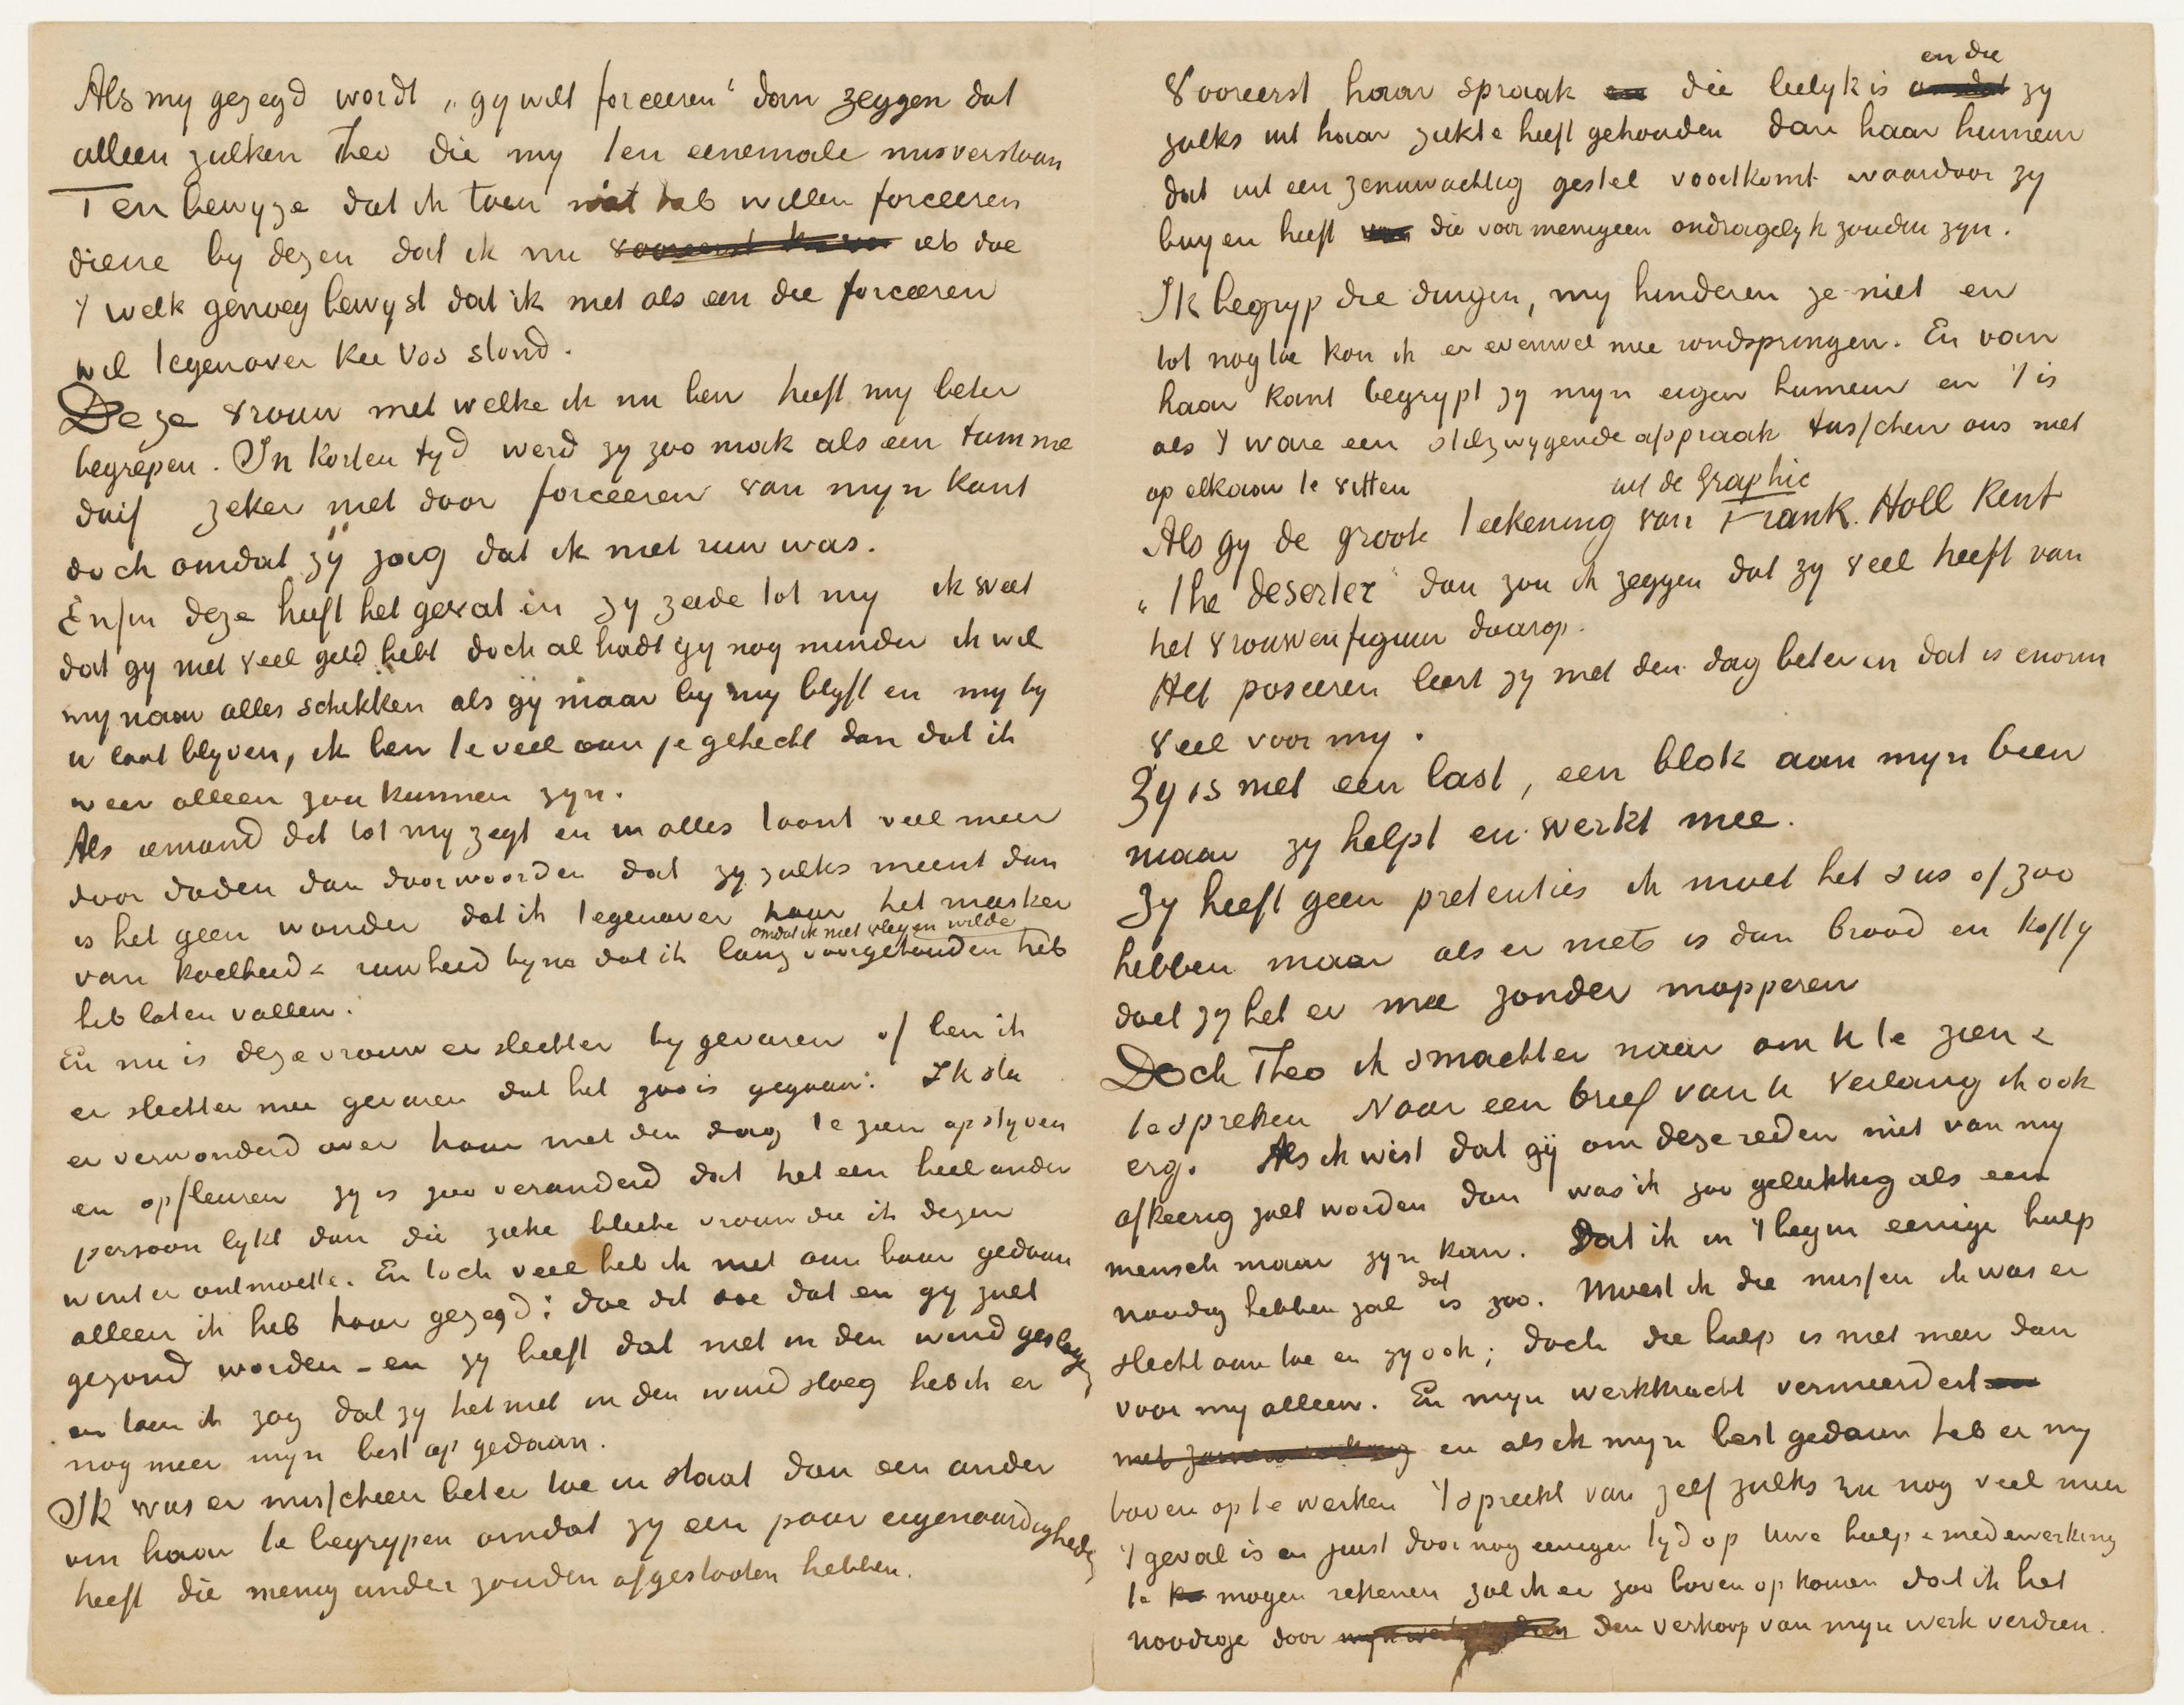 Als my gezegd wordt „gy wilt forceeren" dan zeggen dat
alleen zulken Theo die my ten eenemale misverstaan
Ten bewyze dat ik toen niet heb willen forceeren
diene by dezen dat ik nu iets doe
't welk genoeg bewyst dat ik niet als een die forceeren
wil tegenover Kee Vos stond.
Deze vrouw met welke ik nu ben heeft my beter
begrepen. In korten tyd werd zy zoo mak als een tamme
duif zeker niet door forceeren van myn kant
doch omdat zÿ zag dat ik niet ruw was.
Enfin deze heeft het gevat en zy zeide tot my ik weet
dat gy niet veel geld hebt doch al hadt gy nog minder ik wil
my naar alles schikken als gÿ maar by my blyft en my by
u laat blyven, ik ben te veel aan je gehecht dan dat ik
weer alleen zou kunnen zyn.
Als iemand dat tot my zegt en in alles toont veel meer
door daden dan door woorden dat zy zulks meent dan
is het geen wonder dat ik tegenover haar het masker
omdat ik niet vleyen wilde
van koelheid & ruwheid byna dat ik lang voorgehouden heb
heb laten vallen.
En nu is deze vrouw er slechter by gevaren of ben ik
er slechter mee gevaren dat het zoo is gegaan. Ik sta
er verwonderd over haar met den dag te zien opstyven
en opfleuren zy is zoo veranderd dat het een heel ander
persoon lykt dan die zieke bleeke vrouw die ik dezen
winter ontmoette. En toch veel heb ik niet aan haar gedaan
alleen ik heb haar gezegd: doe dit doe dat en gy zult
gezond worden – en zy heeft dat niet in den wind geslagen
en toen ik zag dat zy het niet in den wind sloeg heb ik er
nog meer myn best op gedaan.
Ik was er misschien beter toe in staat dan een ander
om haar te begrypen omdat zy een paar eigenaardigheden
heeft die menig ander zouden afgestooten hebben.
en die
Vooreerst haar spraak die leelyk is zy
zulks uit haar ziekte heeft gehouden dan haar humeur
dat uit een zenuwachtig gestel voortkomt waardoor zy
buyen heeft die voor menigeen ondragelyk zouden zyn.
Ik begryp die dingen, my hinderen ze niet en
tot nog toe kon ik er evenwel mee rondspringen. En van
haar kant begrypt zy myn eigen humeur en 't is
als 't ware een stilzwygende afspraak tusschen ons niet
op elkaar te vitten
uit de Graphic
Als gy de groote teekening van Frank Holl kent
„The deserter" dan zou ik zeggen dat zy veel heeft van
het vrouwenfiguur daarop.
Het poseeren leert zy met den dag beter en dat is enorm
veel voor my.
Zy is niet een last, een blok aan myn been
maar zy helpt en werkt mee.
Zy heeft geen pretenties ik moet het sus of zoo
hebben maar als er niets is dan brood en koffy
doet zy het er mee zonder mopperen
Doch Theo ik smachter naar om U te zien &
te spreken Naar een brief van U verlang ik ook
erg. Als ik wist dat gÿ om deze reden niet van my
afkeerig zult worden dan was ik zoo gelukkig als een
mensch maar zyn kan. Dat ik in 't begin eenige hulp
dat
noodig hebben zal is zoo. Moest ik die missen ik was er
slecht aan toe en zy ook; doch die hulp is niet meer dan
voor my alleen. En myn werkkracht vermeerdert
en als ik myn best gedaan heb er my
boven op te werken 't spreekt van zelf zulks nu nog veel meer
't geval is en juist door nog eenigen tyd op Uwe hulp & medewerking
te mogen rekenen zal ik er zoo boven op komen dat ik het
noodige door den verkoop van myn werk verdien.